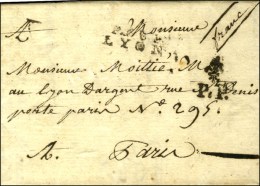 A Monsieur
franc
LYON
Monsieur Moittie M
au Lyon Dargent rue St Denis
P.P.
porte paris No. 295.
A. Paris